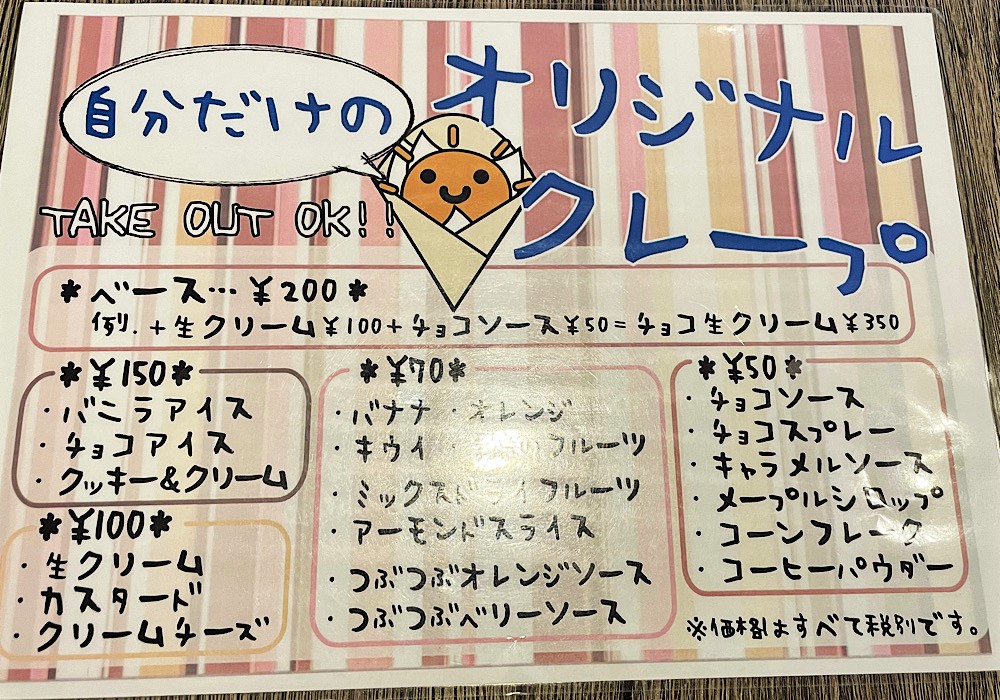 自分だけの
オリジナル
クレープ
TAKE OUT OK!!
*ベース…¥200*
例. +生クリーム¥100+チョコソース¥50=チョコ生クリーム¥350
*¥150*
・バニラアイス
・チョコアイス
・クッキー&クリーム
*¥100*
・生クリーム
・カスタード
・クリームチーズ
*¥70*
・バナナ ・オレンジ
・キウイ ・フルーツ
・ミックスドライフルーツ
・アーモンドスライス
・つぶつぶオレンジソース
・つぶつぶベリーソース
*¥50*
・チョコソース
・チョコスプレー
・キャラメルソース
・メープルシロップ
・コーンフレーク
・コーヒーパウダー
※価格はすべて税別です。